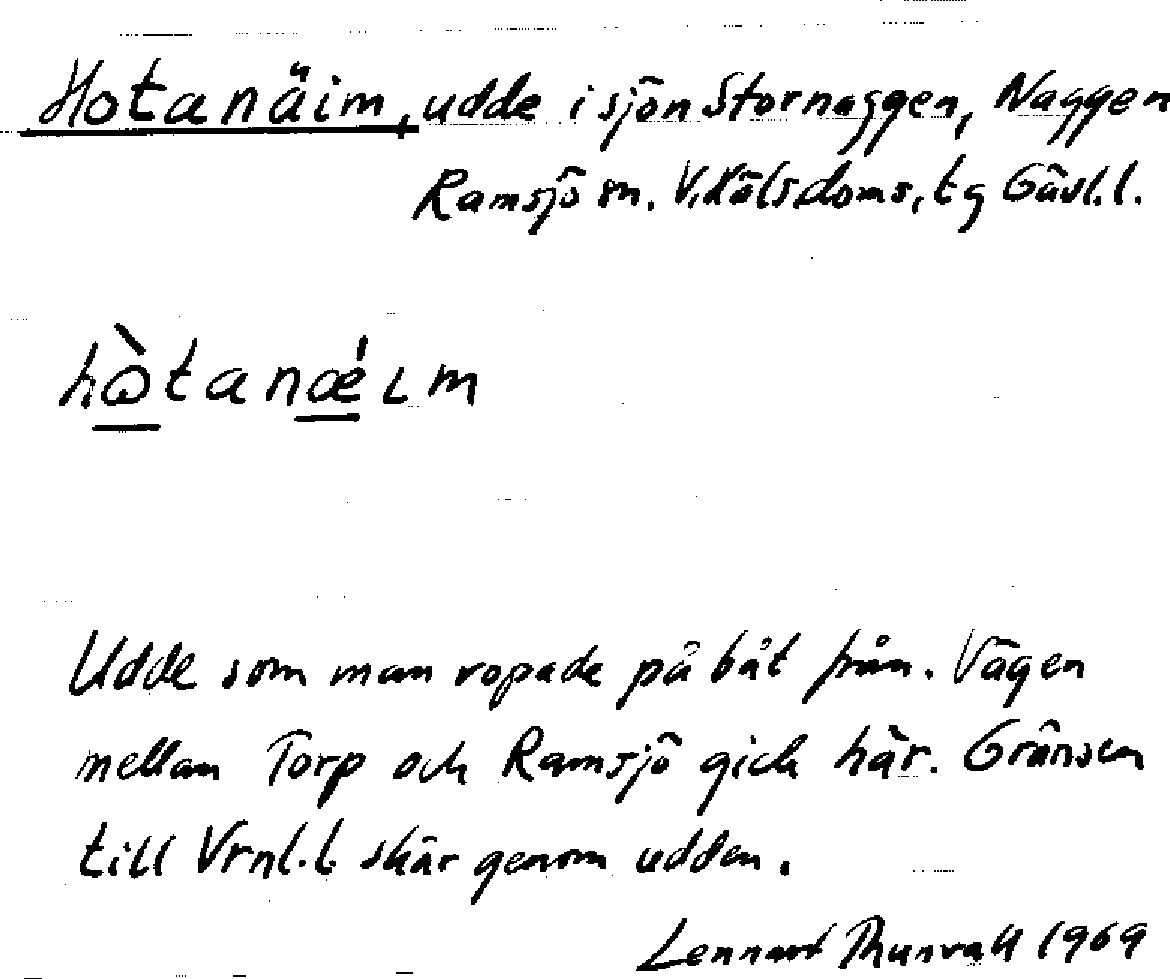 Hotanäim, udde i sjön Stornaggen, Naggen
Ramsjö sn. V. Hälsdoms. tg Gävl.l.
hɷ̀tanǽɩm
Udde som man ropade på båt från. Vägen
mellan Torp och Ramsjö gick här. Gränsen
till Vrnl.l. skär genom udden.
Lennart Thunvall 1969